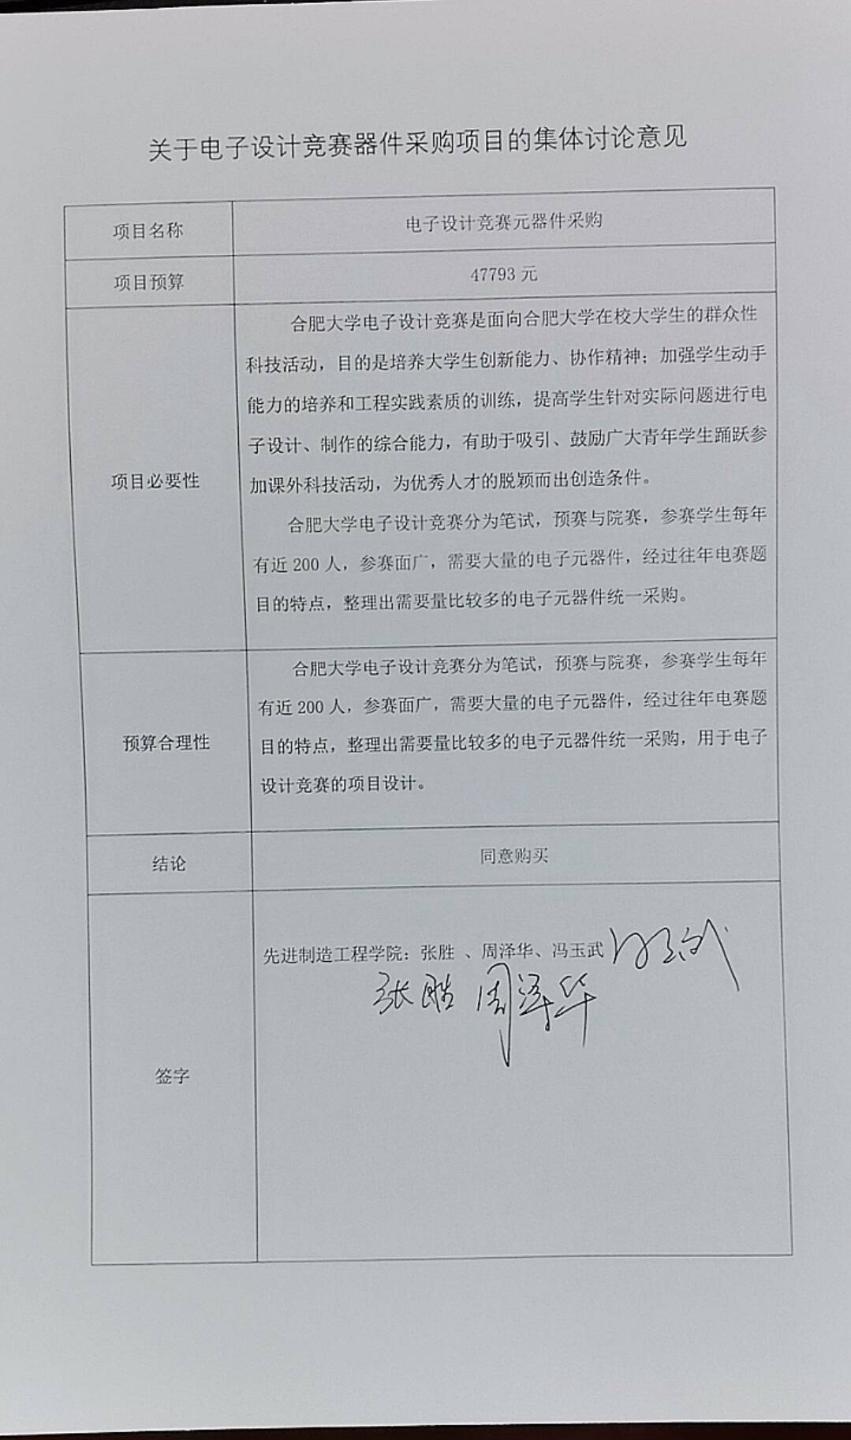 关于电子设计竞赛器件采购项目的集体讨论意见
项目名称
电子设计竞赛元器件采购
项目预算
47793 元
项目必要性
合肥大学电子设计竞赛是面向合肥大学在校大学生的群众性
科技活动，目的是培养大学生创新能力、协作精神；加强学生动手
能力的培养和工程实践素质的训练，提高学生针对实际问题进行电
子设计、制作的综合能力，有助于吸引、鼓励广大青年学生踊跃参
加课外科技活动，为优秀人才的脱颖而出创造条件。
合肥大学电子设计竞赛分为笔试，预赛与院赛，参赛学生每年
有近 200 人，参赛面广，需要大量的电子元器件，经过往年电赛题
目的特点，整理出需要量比较多的电子元器件统一采购。
预算合理性
合肥大学电子设计竞赛分为笔试，预赛与院赛，参赛学生每年
有近 200 人，参赛面广，需要大量的电子元器件，经过往年电赛题
目的特点，整理出需要量比较多的电子元器件统一采购，用于电子
设计竞赛的项目设计。
结论
同意购买
签字
先进制造工程学院：张胜 、周泽华、冯玉武 冯玉武
张胜 周泽华